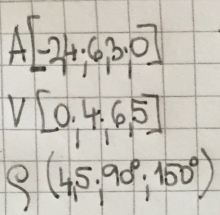 A[-2,4;6,3;0]
V[0;4;6,5]
ρ(4,5;90°;150°)